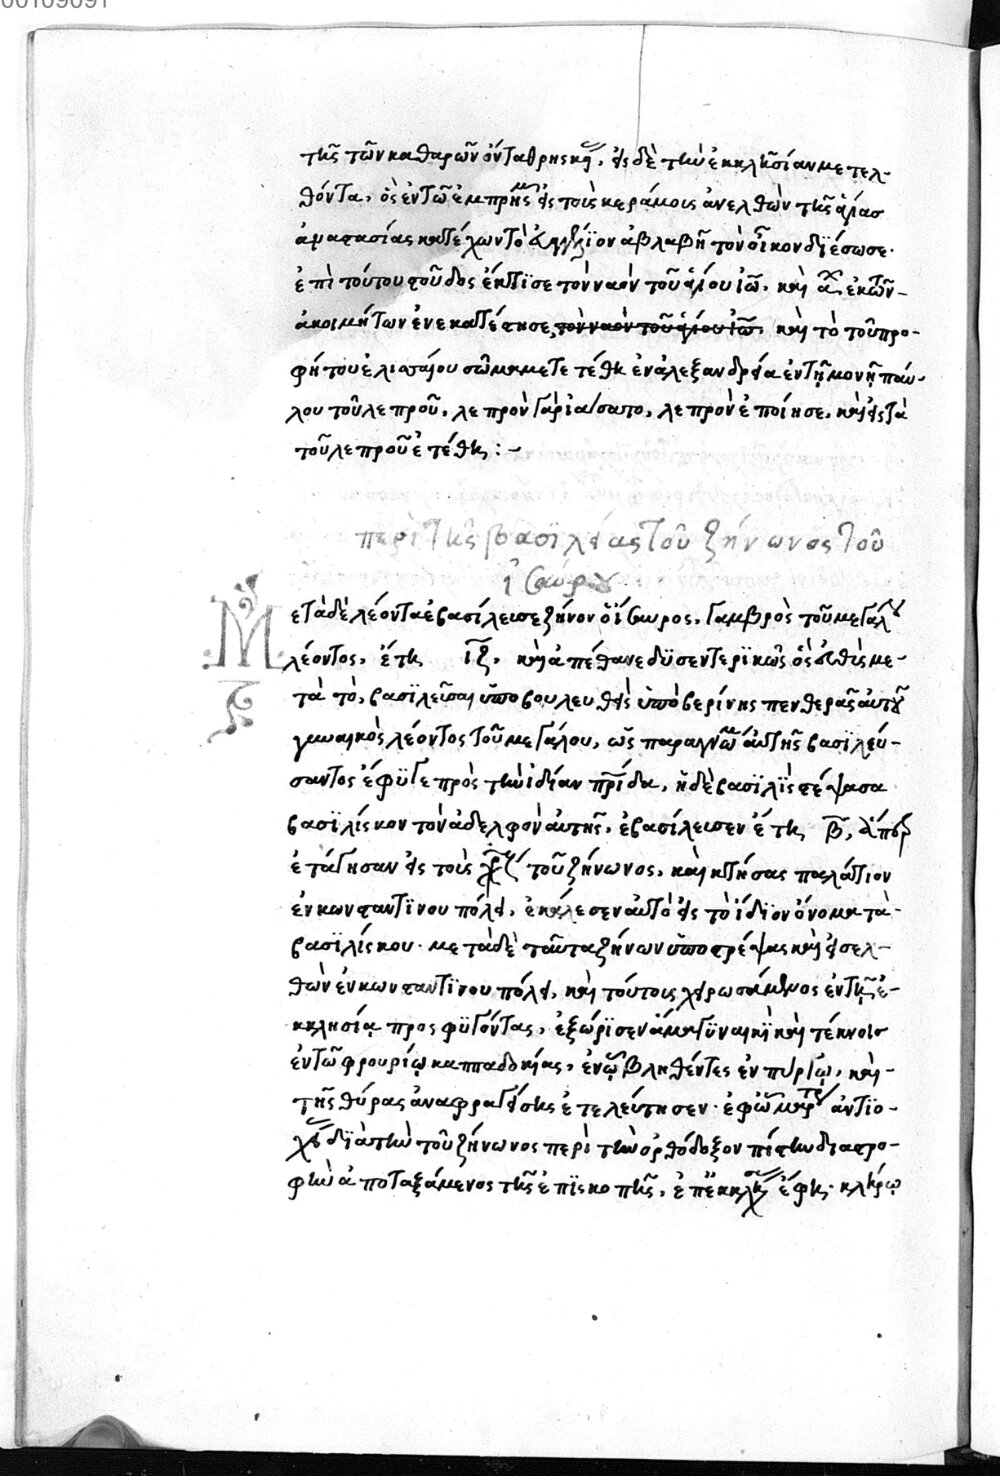 τῆς τῶν καθαρῶν ὄντα θρησκ, εἰς δὲ τὴν ἐκκλησίαν μετελ-
θόντα, ὃς ἐν τῷ ἐμπρησμ εἰς τοὺς κεράμους ἀνελθὼν τῆς ἁγίας
ἀναστασίας κατέχων τὸ εὐαγγέλιον ἀβλαβῆ τὸν οἶκον διέσωσε·
ἐπὶ τούτου στοῦδος ἔκτισε τὸν ναὸν τοῦ ἁγίου ἰω, καὶ ἐκ τῶν-
ἀκοιμήτων ἐνεκατέστησε τὸν ναὸν τοῦ ἁγίου ἰω, καὶ τὸ τοῦ προ-
φήτου ἐλισσαίου σῶμα μετετέθη ἐν ἀλεξανδρεία ἐν τῇ μονῇ παύ-
λου τοῦ λεπροῦ, λεπρὸν γὰρ ἰάσατο, λεπρὸν ἐποίησε, καὶ εἰς τὰ
τοῦ λεπροῦ ἐτέθη :-
περὶ τῆς βασιλείας τοῦ ζήνωνος τοῦ
ἰσαύρου
Μετὰ δὲ λέοντα ἐβασίλευσε ζήνον ὁ ἴσαυρος, γαμβρὸς τοῦ μεγάλου
λέοντος, ἔτη ιζ, καὶ ἀπέθανε δυσεντερικῶς ὃς εὐθὺς με-
τὰ τὸ, βασιλεῦσαι ὑποβουλευθεὶς ὑπὸ βερίνης πενθερᾶς αὐτοῦ
γυναικὸς λέοντος τοῦ μεγάλου, ὡς παρα γνώμ αὐτῆς βασιλεύ-
σαντος ἔφυγε πρὸς τὴν ἰδίαν πρίδα, ἡ δὲ βασιλὶς στέψασα
βασιλίσκον τὸν ἀδελφὸν αὐτῆς, ἐβασίλευσεν ἔτη β,
ἐτάγησαν εἰς τοὺς τοῦ ζήνωνος, καὶ κτήσας παλάτιον
ἐν κωνσταντινουπόλει, ἐκάλεσεν αὐτὸ εἰς τὸ ἴδιον ὄνομα τὰ-
βασιλίσκου· μετὰ δὲ ταῦτα ζήνων ὑποστρέψας καὶ εἰσελ-
θὼν ἐν κωνσταντινουπόλει, καὶ τούτοις χειρωσάμενος ἐν τῇ ἐ-
κκλησίᾳ προσφυγόντας, ἐξώρισεν ἅμα γυναικὶ καὶ τέκνοις
ἐν τῷ φρουρίῳ καππαδοκίας, ἐν ᾧ βληθέντες ἐν πύργῳ, καὶ-
τῆς θύρας ἀναφραγείσης ἐτελεύτησεν· ἐφ ὧ μαρτύ ἀντιο-
χεί διὰ τὴν τοῦ ζήνωνος περὶ τὴν ὀρθόδοξον πίστιν διαστρο-
φὴν ἀποταξάμενος τῆς ἐπισκοπῆς, ἐπ ἐκκλησί ἔφη· κλήρῳ